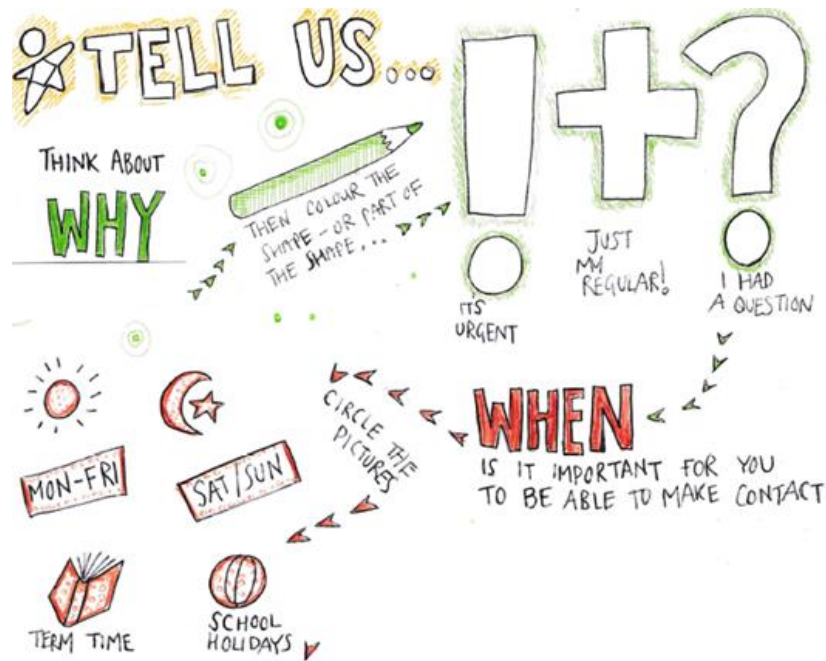 TELL US...
THINK ABOUT
WHY
THEN COLOUR THE
SHAPE - OR PART OF
THE SHAPE...
! + ?
IT'S
URGENT
JUST
MY
REGULAR!
I HAD
A QUESTION
WHEN
IS IT IMPORTANT FOR YOU
TO BE ABLE TO MAKE CONTACT
CIRCLE THE
PICTURES
MON-FRI
SAT/SUN
TERM TIME
SCHOOL
HOLIDAYS